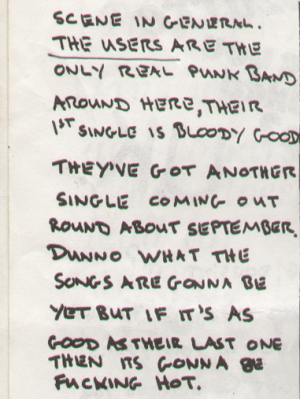 SCENE IN GENERAL.
THE USERS ARE THE
ONLY REAL PUNK BAND
AROUND HERE, THEIR
1ST SINGLE IS BLOODY GOOD
THEY'VE GOT ANOTHER
SINGLE COMING OUT
ROUND ABOUT SEPTEMBER.
DUNNO WHAT THE
SONGS ARE GONNA BE
YET BUT IF IT'S AS
GOOD AS THEIR LAST ONE
THEN ITS GONNA BE
FUCKING HOT.